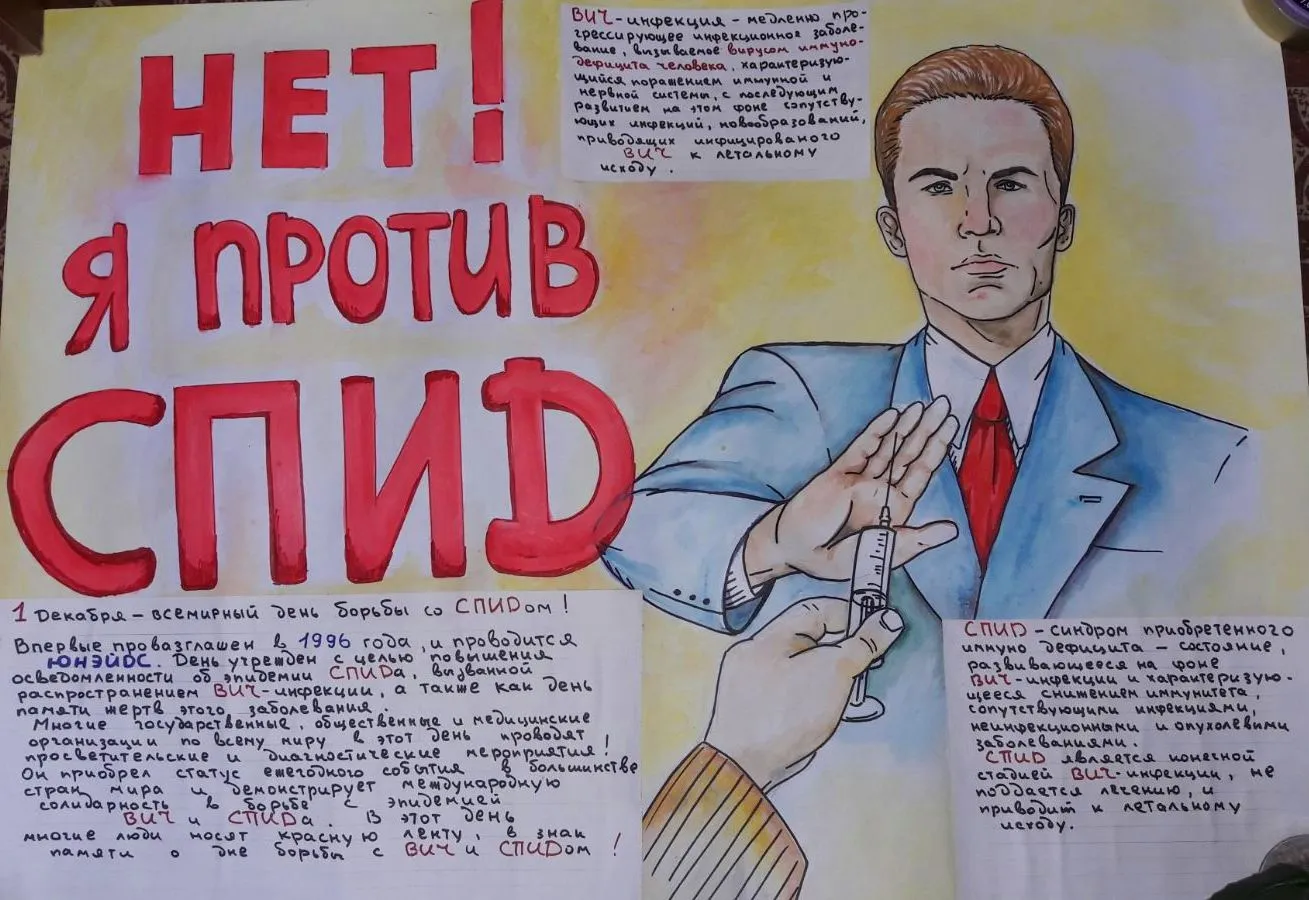 НЕТ!
Я ПРОТИВ
СПИД
ВИЧ-инфекция – медлено про-
грессирующее инфекционное заболе-
вание, вызываемое вирусом иммуно-
дефицита человека, характеризую-
щийся поражением иммунной и
нервной системы, с последующим
развитием на этом фоне сопутству-
ющих инфекций, новообразований,
приводящих инфицированого
ВИЧ к летальному
исходу.
1 Декабря – всемирный день борьбы со СПИДом!
Впервые провазглашен в 1996 года, и проводится
ЮНЭЙДС. День учрежден с целью повышения
осведомленности об эпидемии СПИДа, вызванной
распространением ВИЧ-инфекции, а также как день
памяти жертв этого заболевания.
Многие государственные, общественные и медицинские
организации по всему миру в этот день проводят
просветительские и диагностические мероприятия!
Он приобрел статус ежегодного события в большинстве
стран мира и демонстрирует международную
солидарность в борьбе с эпидемией
ВИЧ и СПИДа. В этот день
многие люди носят красную ленту, в знак
памяти о дне борьбы с ВИЧ и СПИДом!
СПИД – синдром приобретенного
иммуно дефицита – состояние,
развивающееся на фоне
ВИЧ-инфекции и характеризую-
щееся снижением иммунитета,
сопутствующими инфекциями,
неинфекционными и опухолевыми
заболеваниями.
СПИД является конечной
стадией ВИЧ-инфекции, не
поддается лечению, и
приводит к летальному
исходу.